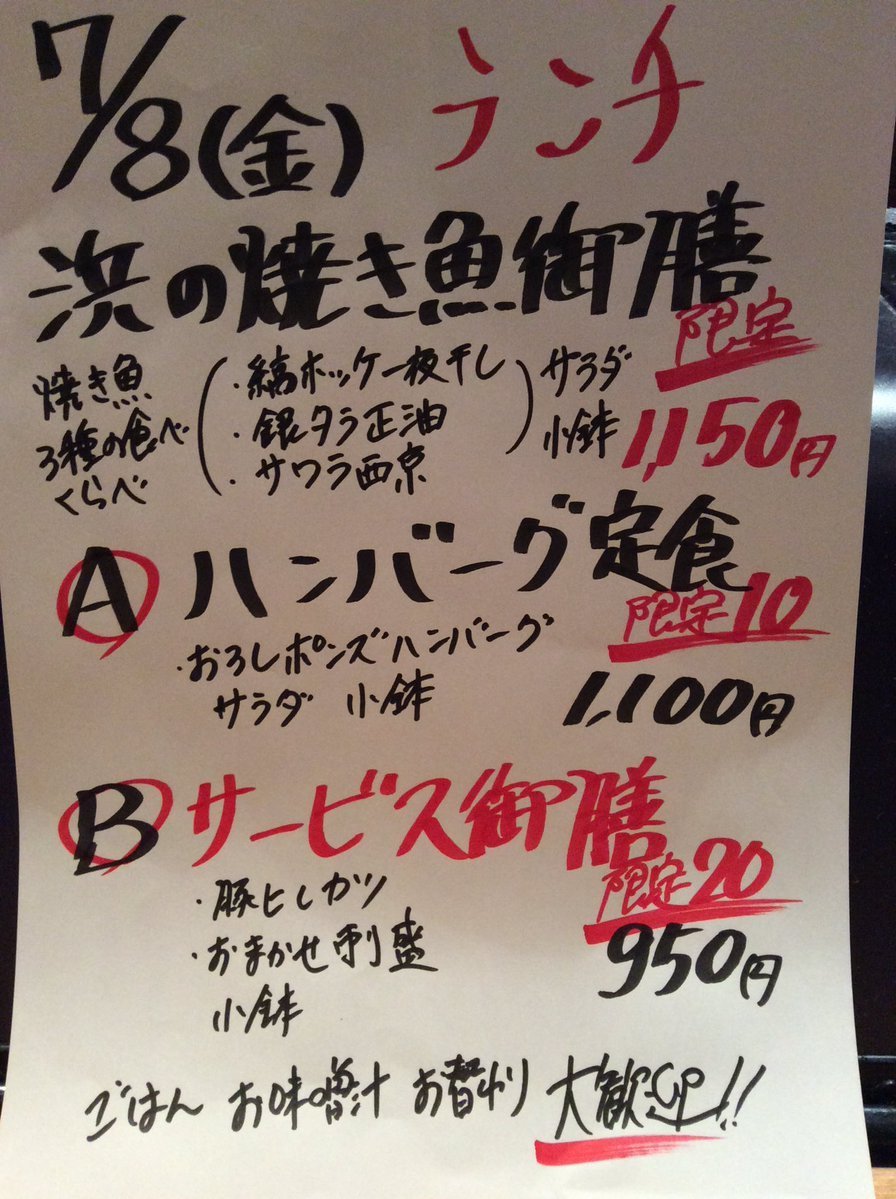 7/8(金) ランチ
浜の焼き魚御膳
限定
焼き魚
3種の食べ
くらべ
・縞ホッケ一夜干し
・銀タラ正油
・サワラ西京
サラダ
小鉢
1,150円
A ハンバーグ定食
限定10
・おろしポンズハンバーグ
サラダ 小鉢
1,100円
B サービス御膳
限定20
・豚ヒレカツ
・おまかせ刺盛
小鉢
950円
ごはん お味噌汁 お替わり 大歓迎!!